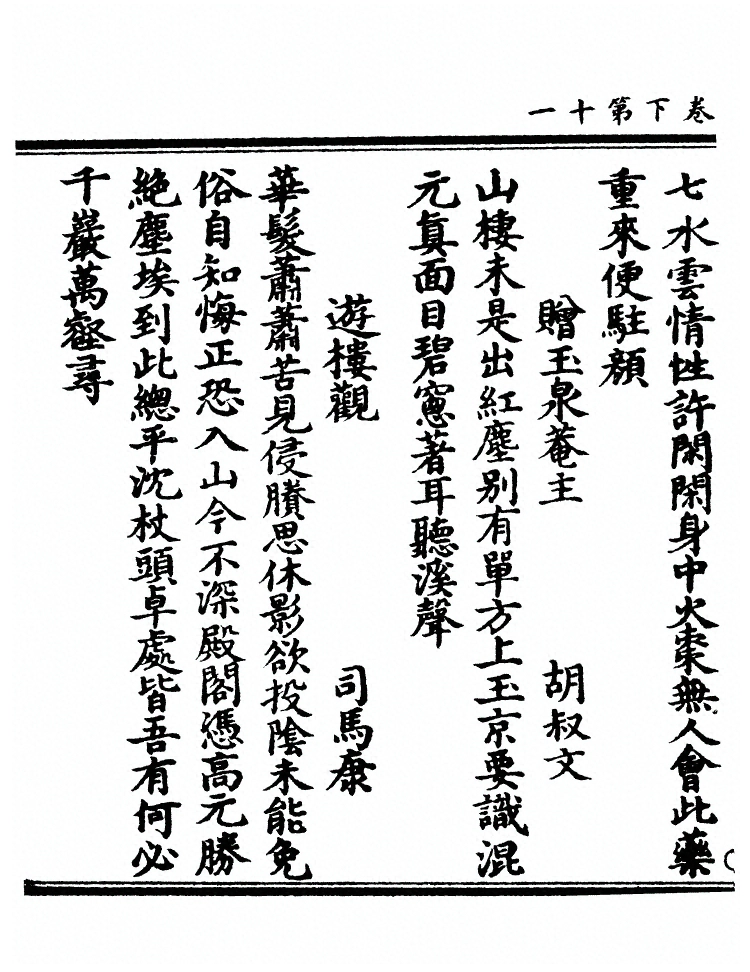 卷下第十一
七水雲情性許閑閑身中火棗無人會此藥
重來便駐顏
贈玉泉菴主 胡叔文
山棲未是出紅塵別有單方上玉京要識混
元真面目碧窻著耳聽溪聲
遊樓觀 司馬康
華髮蕭蕭苦見侵賸思休影欲投陰未能免
俗自知悔正恐入山今不深殿閣憑高元勝
絕塵埃到此總平沈杖頭卓處皆吾有何必
千巖萬壑尋